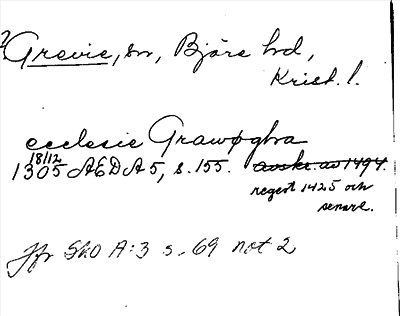 ? Grevie, sn, Bjäre hd,
Krist. l.
ecclesie Grawøgha
18/12
1305 AEDA 5, s. 155. avskr. av 1494.
regest 1425 och
senare.
Jfr SkO A:3 s. 69 not 2